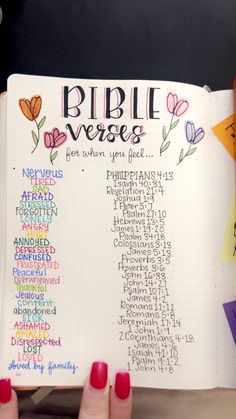 BIBLE
verses
for when you feel...
Nervous
TIRED
SAD
AFRAID
STRESSED
FORGOTTEN
LONELY
ANGRY
HURT
ANNOYED
DEPRESSED
CONFUSED
FRUSTRATED
Peaceful
Overwhelmed
Thankful
Jealous
Content
abandoned
SICK
ASHAMED
AMAZED
Disrespected
LOST
LOVED
Loved by family
PHILIPPIANS 4:13
Isaiah 40:31
Revelation 21:4
Joshua 1:9
1 Peter 5:7
Psalm 27:10
Hebrews 13:5
James 1:19-20
Psalm 34:18
Colossians 3:13
James 5:13
Proverbs 3:5
Proverbs 3:6
John 16:33
John 14:27
Psalm 107:1
James 4:2
Romans 12:12
Romans 5:8
Jeremiah 17:14
John 1:9
2 Corinthians 4:18
James 4:6
Isaiah 41:10
Psalm 9:1-2
1 John 4:8